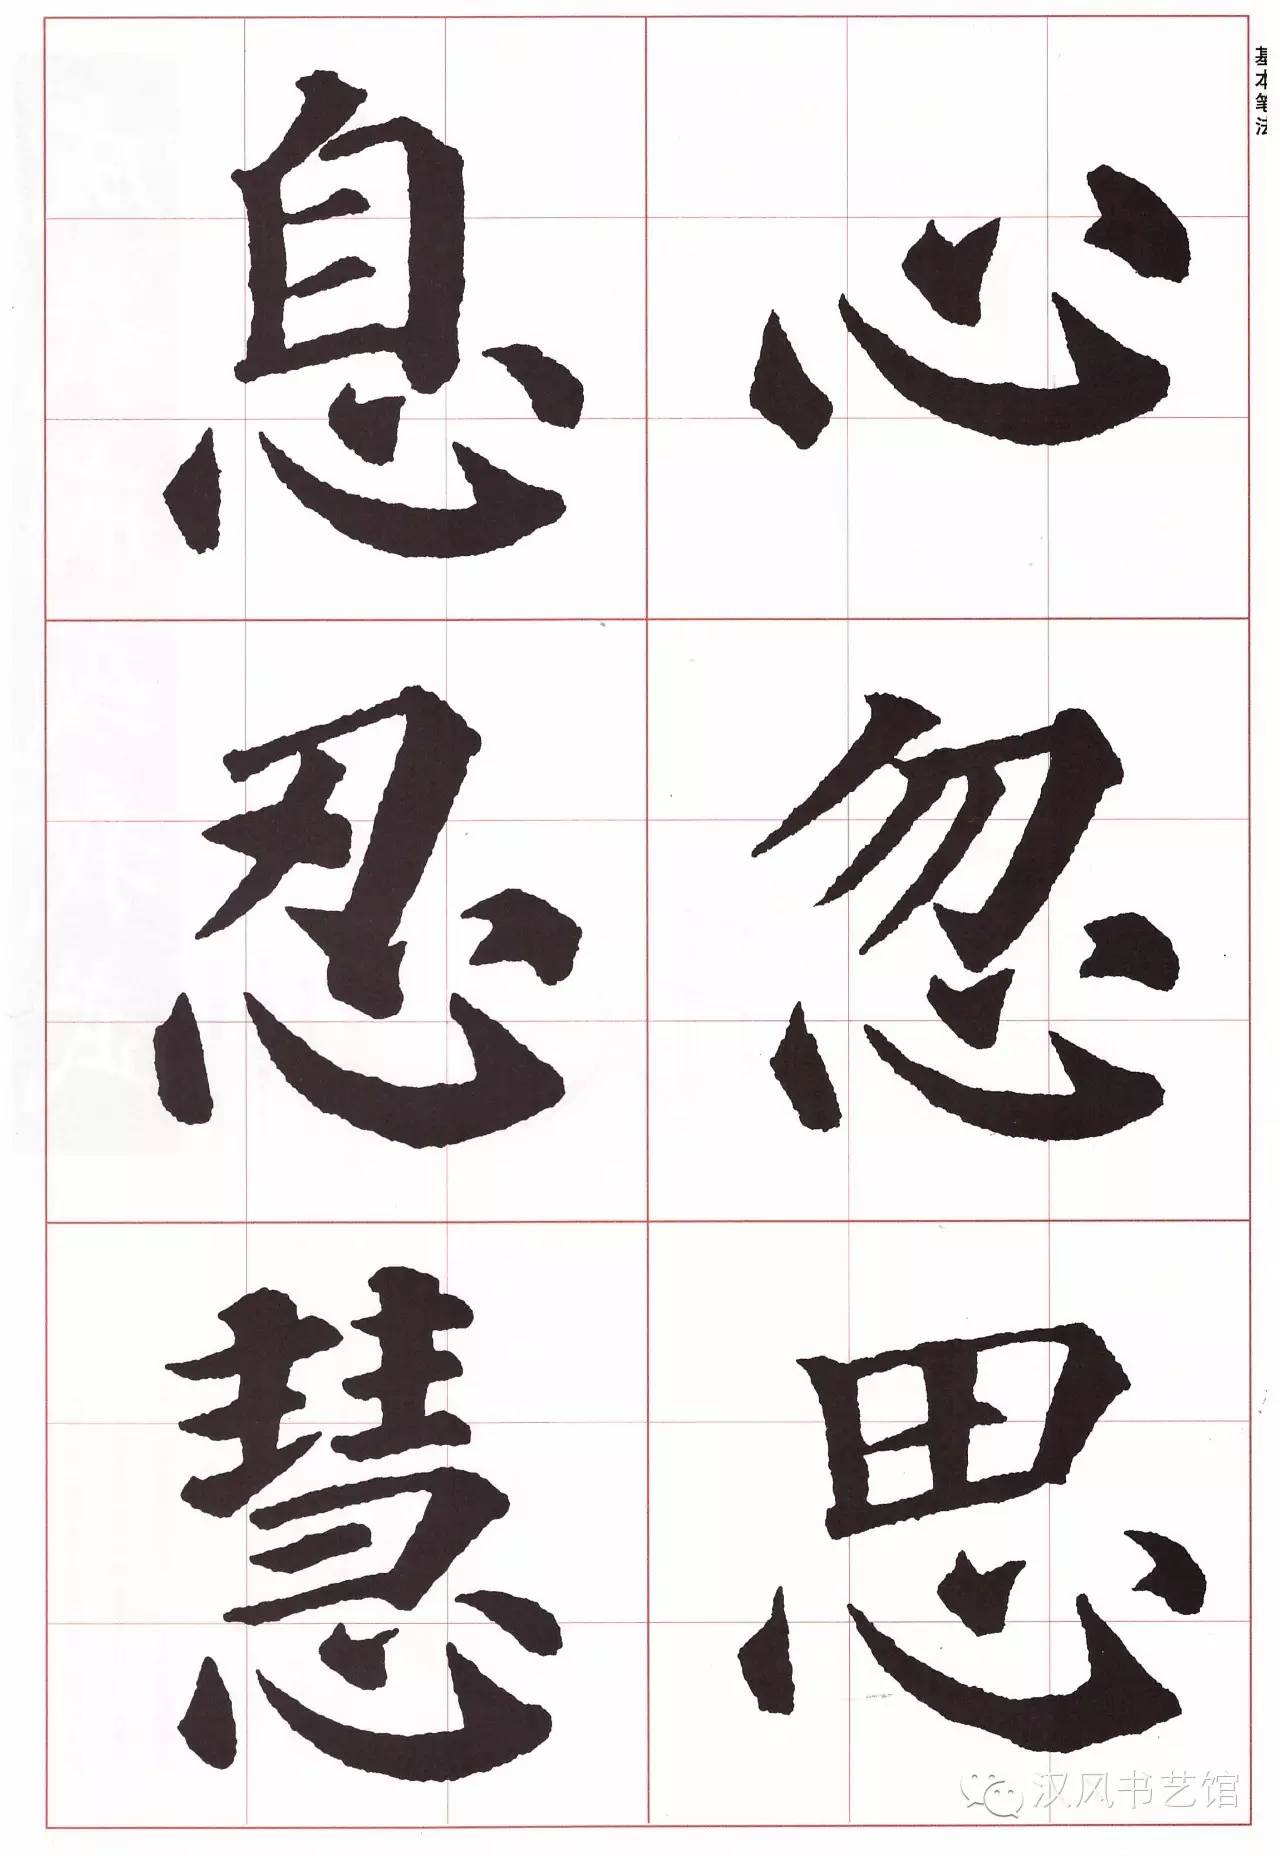 基本笔法
心
忽
思
息
忍
慧
汉风书艺馆